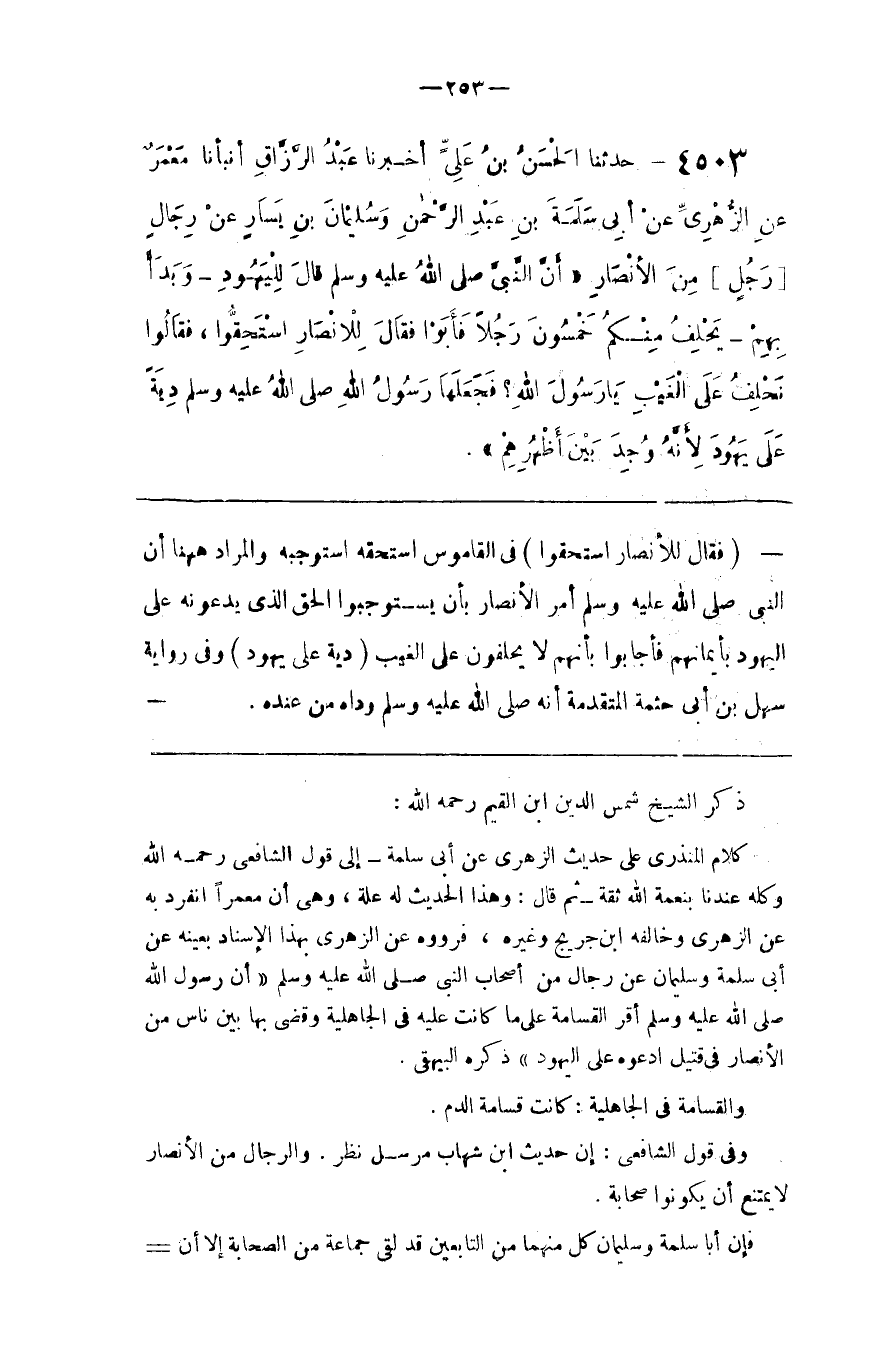 —٢٥٣—
٤٥٠٣ – حدثنا الْحَسَنُ بنُ عَلِيٍّ أخبرنا عَبْدُ الرَّزَّاقِ أنبأنا مَعْمَرٌ
عنِ الزُّهْرِيِّ عنْ أبي سَلَمَةَ بنِ عَبْدِ الرَّحْمٰنِ وَسُلَيْمَانَ بنِ يَسَارٍ عنْ رِجَالٍ
[ رَجُلٍ ] مِنَ الأنْصَارِ « أنَّ النَّبيَّ صلى اللهُ عليه وسلم قالَ لِلْيَهُودِ – وَبَدَأَ
بِهِمْ – يَحْلِفُ مِنْكُمْ خَمْسُونَ رَجُلاً فَأَبَوْا فقالَ لِلْأنْصَارِ اسْتَحِقُّوا ، فقَالُوا
نَحْلِفُ عَلَى الْغَيْبِ يَارَسُولَ اللهِ؟ فَجَعَلَهَا رَسُولُ اللهِ صلى اللهُ عليه وسلم دِيَةً
عَلَى يَهُودَ لِأَنَّهُ وُجِدَ بَيْنَ أَظْهُرِهِمْ » .
— ( فقال للأنصار استحقوا ) فى القاموس استحقه استوجبه والمراد ههنا أن
النبى صلى الله عليه وسلم أمر الأنصار بأن يستوجبوا الحق الذى يدعونه على
اليهود بأيمانهم فأجابوا بأنهم لا يحلفون على الغيب ( دية على يهود ) وفى رواية
سهل بن أبى حثمة المتقدمة أنه صلى الله عليه وسلم وداه من عنده . —
ذكر الشيخ شمس الدين ابن القيم رحمه الله :
كلام المنذرى على حديث الزهرى عن أبى سلمة – إلى قول الشافعى رحمه الله
وكله عندنا بنعمة الله ثقة – ثم قال : وهذا الحديث له علة ، وهى أن معمراً انفرد به
عن الزهرى وخالفه ابن جريج وغيره ، فرووه عن الزهرى بهذا الإسناد بعينه عن
أبى سلمة وسليمان عن رجال من أصحاب النبى صلى الله عليه وسلم « أن رسول الله
صلى الله عليه وسلم أقر القسامة على ما كانت عليه فى الجاهلية وقضى بها بين ناس من
الأنصار فى قتيل ادعوه على اليهود » ذكره البيهقى .
والقسامة فى الجاهلية : كانت قسامة الدم .
وفى قول الشافعى : إن حديث ابن شهاب مرسل نظر . والرجال من الأنصار
لا يمتنع أن يكونوا صحابة .
فإن أبا سلمة وسليمان كل منهما من التابعين قد لقى جماعة من الصحابة إلا أن =